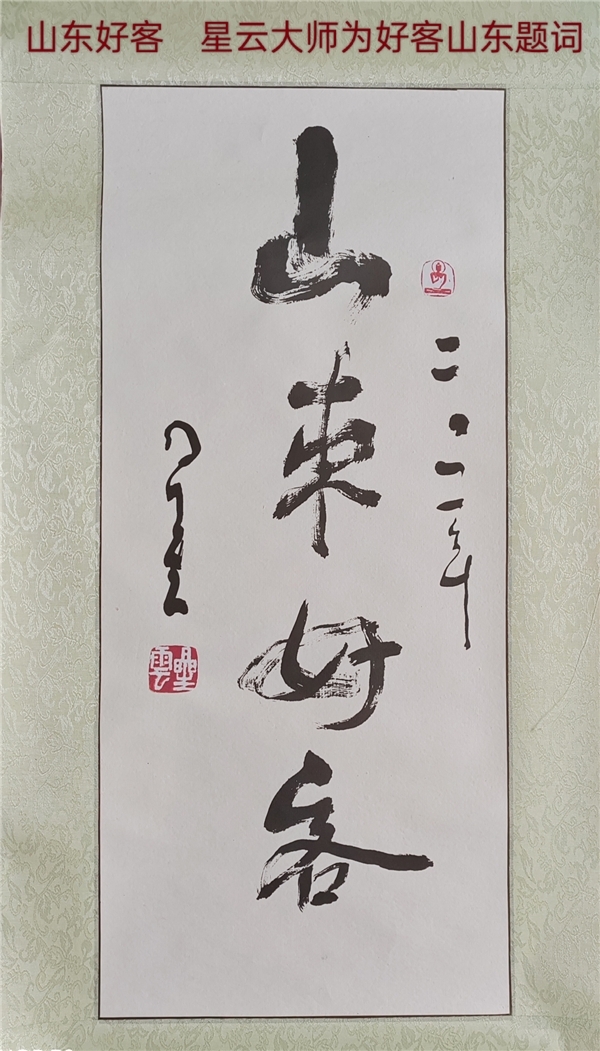 山东好客　星云大师为好客山东题词
二〇一一年
山東好客
星雲
星雲